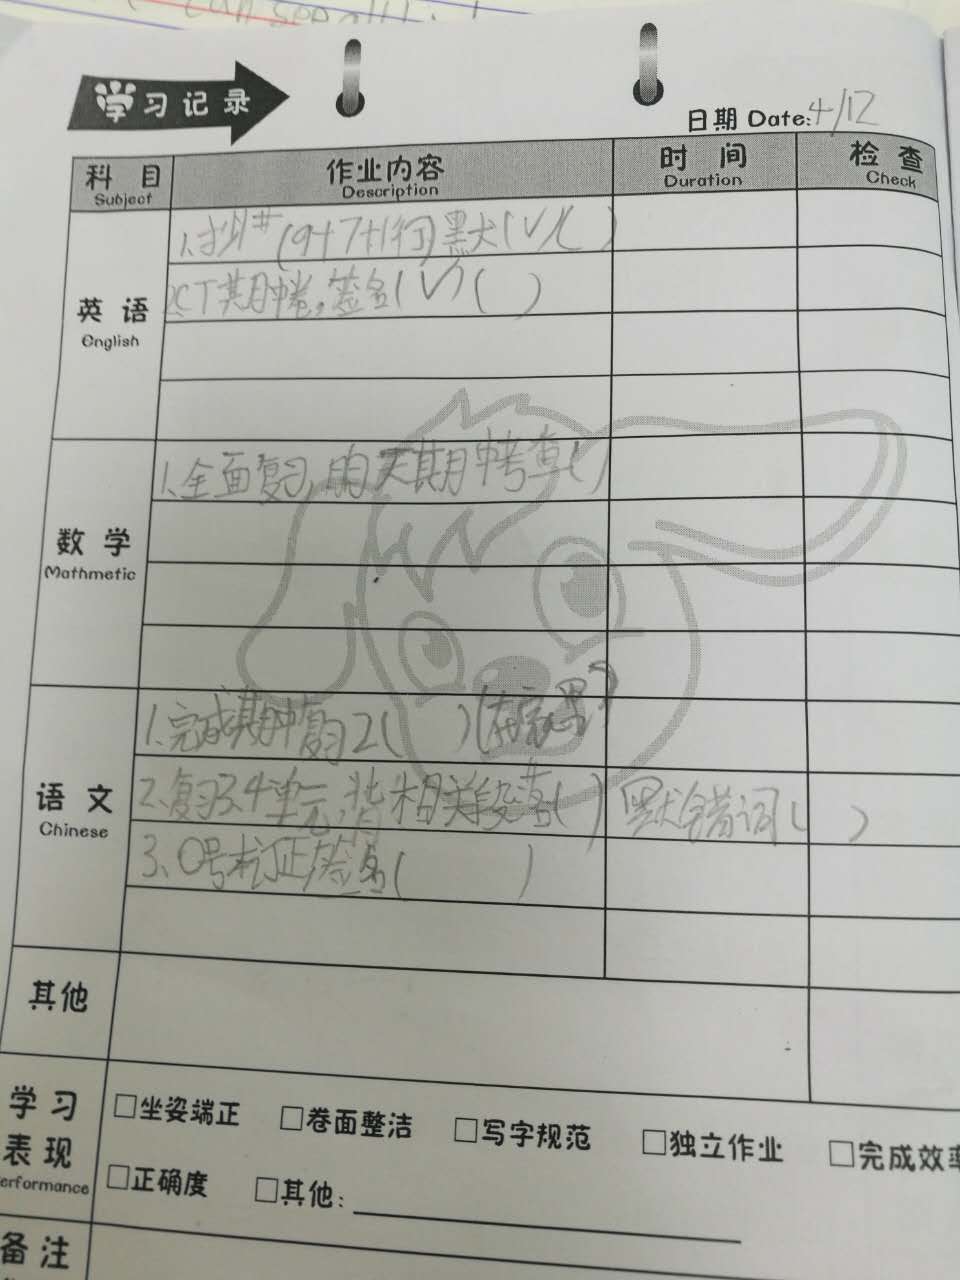 学习记录
日期 Date: 4/12
科目 作业内容 时间 检查
Subject Description Duration Check
英语
English
1. (9+7+1行) 默 (√)( )
2. CT 期中卷, 签名 (√) ( )
数学
Mathmetic
1. 全面复习, 明天期中考查( )
语文
Chinese
1. 完成期中复习2( )
2. 复习3.4单元, 背相关段落( ) 默错词( )
3. 0号 订正, 签名( )
其他
学习表现
erformance
□坐姿端正 □卷面整洁 □写字规范 □独立作业 □完成效率
□正确度 □其他:
备注